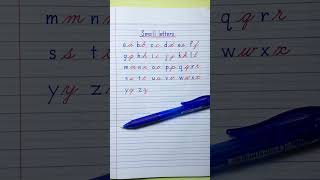 Small letters
aa bb cc dd ee ff
gg hh ii jj kk ll
mm nn oo pp qq rr
ss tt uu vv ww xx
yy zz